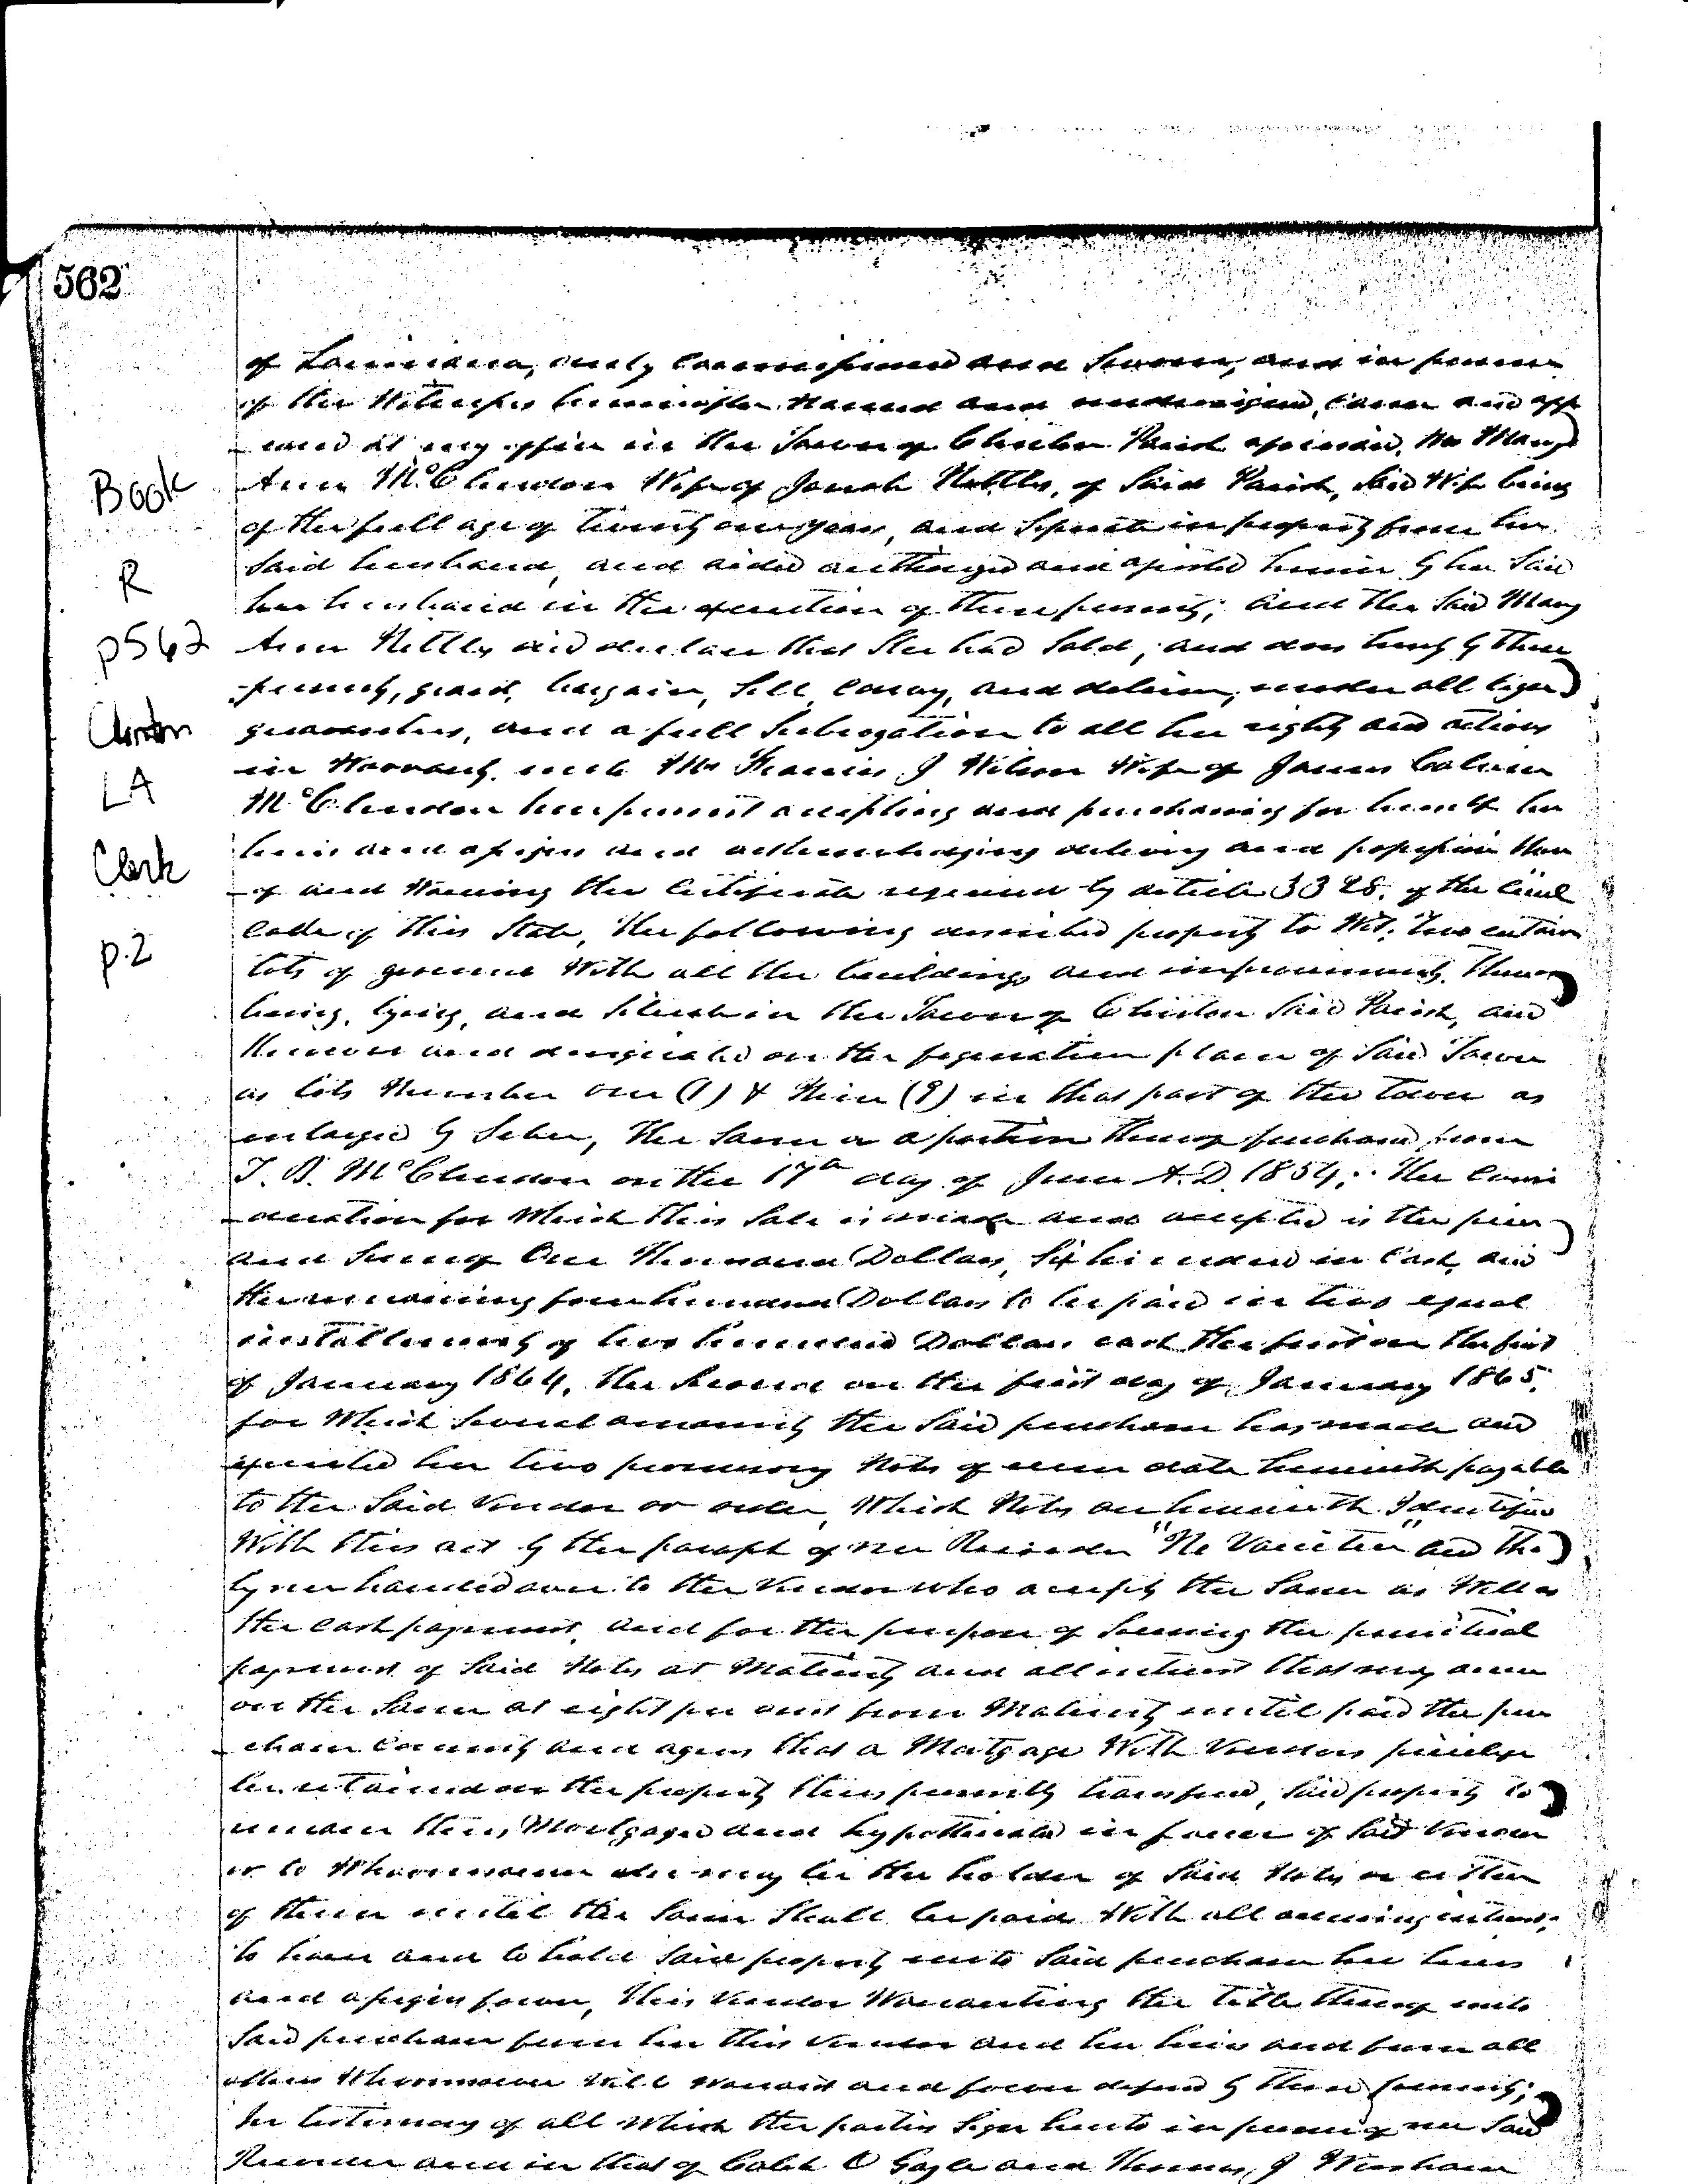 562
of Louisiana, duly Commissioned and Sworn, and in presence
of the Witnesses hereinafter Named and undersigned, Came and app
-eared at my office in the Town of Clinton Parish aforesaid, Mrs Mary
Ann McClendon Wife of Jonah Nettles, of Said Parish, Said Wife being
of the full age of twenty one years, and Seperate in property from her
Said husband, and aided authorized and assisted herein by her Said
her husband in the execution of these presents; and the Said Mary
Ann Nettles did declare that She had Sold, and does hereby by these
presents, grant, bargain, Sell, Convey, and deliver, under all legal
guarantees, and a full Subrogation to all her rights and actions
in Warranty unto Mrs Francis J Wilson Wife of James Calvin
McClendon here present accepting and purchasing for herself her
heirs and assigns and acknowledging delivery and possession there
-of and Waiving the Certificate required by article 3328, of the Civil
Code of this State, the following described property to Wit; Two certain
lots of ground With all the buildings and improvements thereon
being, lying, and Situate in the Town of Clinton Said Parish, and
Known and designated on the plan of Said Town
as lots Number One (1) & Nine (9) in that part of the town as
enlarged by Seber, the Same or a portion thereof purchased from
T. B. McClendon on the 17th day of June A.D. 1854; The Consi
-deration for Which this Sale is made and accepted is the price
and Sum of One Thousand Dollars, Six hundred in Cash, and
the remaining four hundred Dollars to be paid in two equal
installments of two hundred Dollars each the first on the first
of January 1864, the Second on the first day of January 1865,
for Which Several amounts the Said purchaser has made and
executed her two promissory Notes of even date herewith payable
to the Said Vendor or order, Which Notes are herewith Identified
With this act by the paraph of me Recorder "Ne Varietur" and the
by me handed over to the Vendor who accepts the Same as Well as
the Cash payment, and for the purpose of Securing the punctual
payment of Said Notes at Maturity and all interest that may accrue
on the Same at eight per cent from Maturity until paid the pur
-chaser Consents and agrees that a Mortgage With Vendors privilege
be retained on the property thus presently transferred, Said property to
remain thus, Mortgaged and hypothecated in favor of Said Vendor
or to Whomsoever else may be the holder of Said Notes or either
of them until the Same Shall be paid With all accruing interest;
to have and to hold Said property unto Said purchaser her heirs
and assigns forever, this Vendor Warranting the title thereof unto
Said purchaser from her this Vendor and her heirs and from all
others Whomsoever Will Warrant and forever defend by these presents;
In testimony of all Which the parties Sign hereto in presence of me Said
Recorder and in that of Caleb C Gayle and Thomas J Worsham
Book
R
p562
Clinton
LA
Clerk
p.2